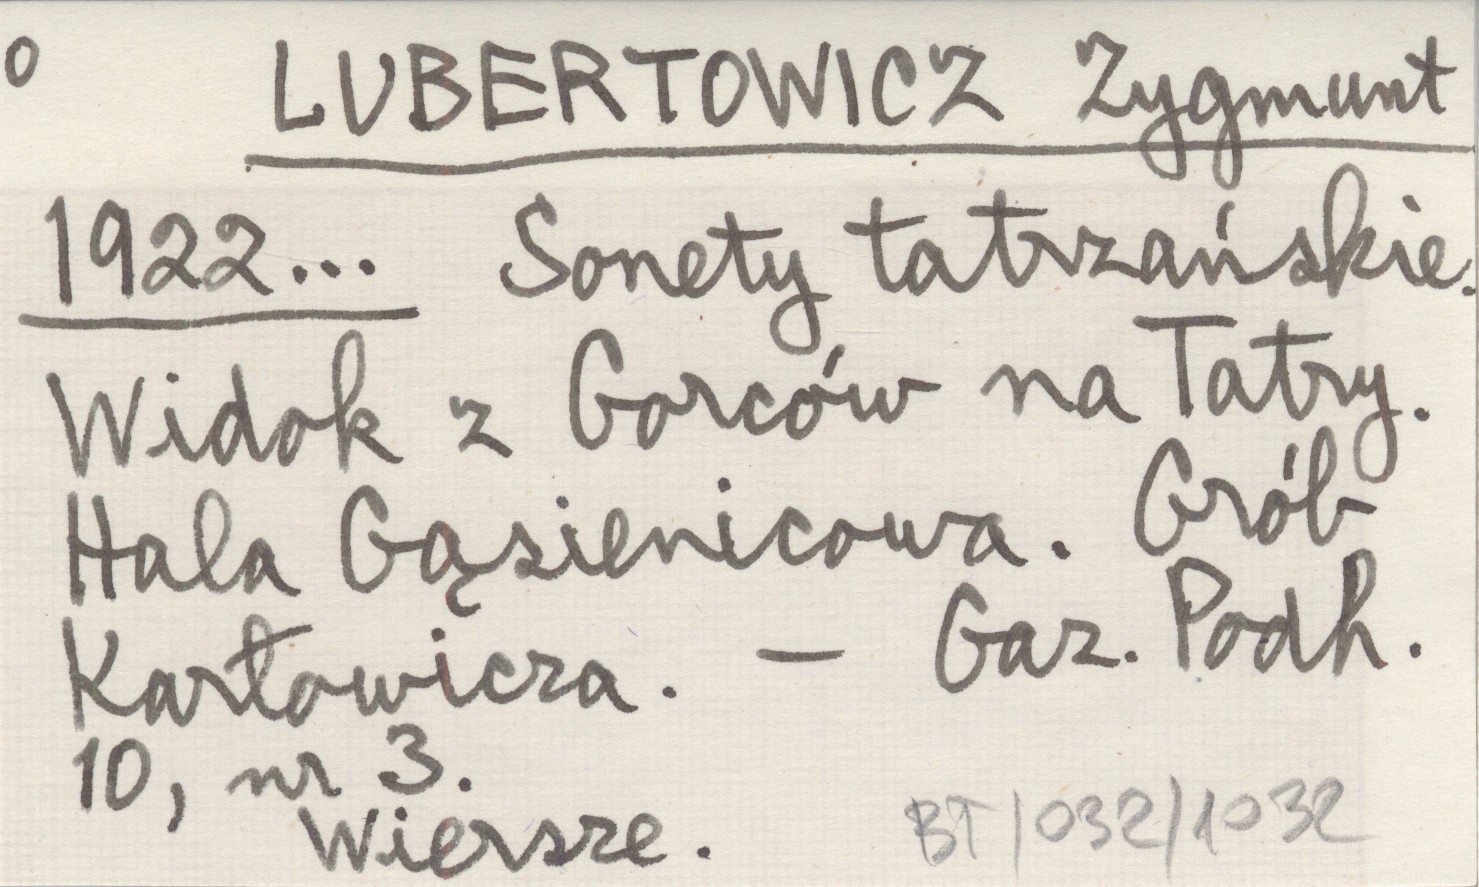 o LUBERTOWICZ Zygmunt
1922... Sonety tatrzańskie.
Widok z Gorców na Tatry.
Hala Gąsienicowa. Grób
Karłowicza. — Gaz. Podh.
10, nr 3.
Wiersze.
BT/032/1032